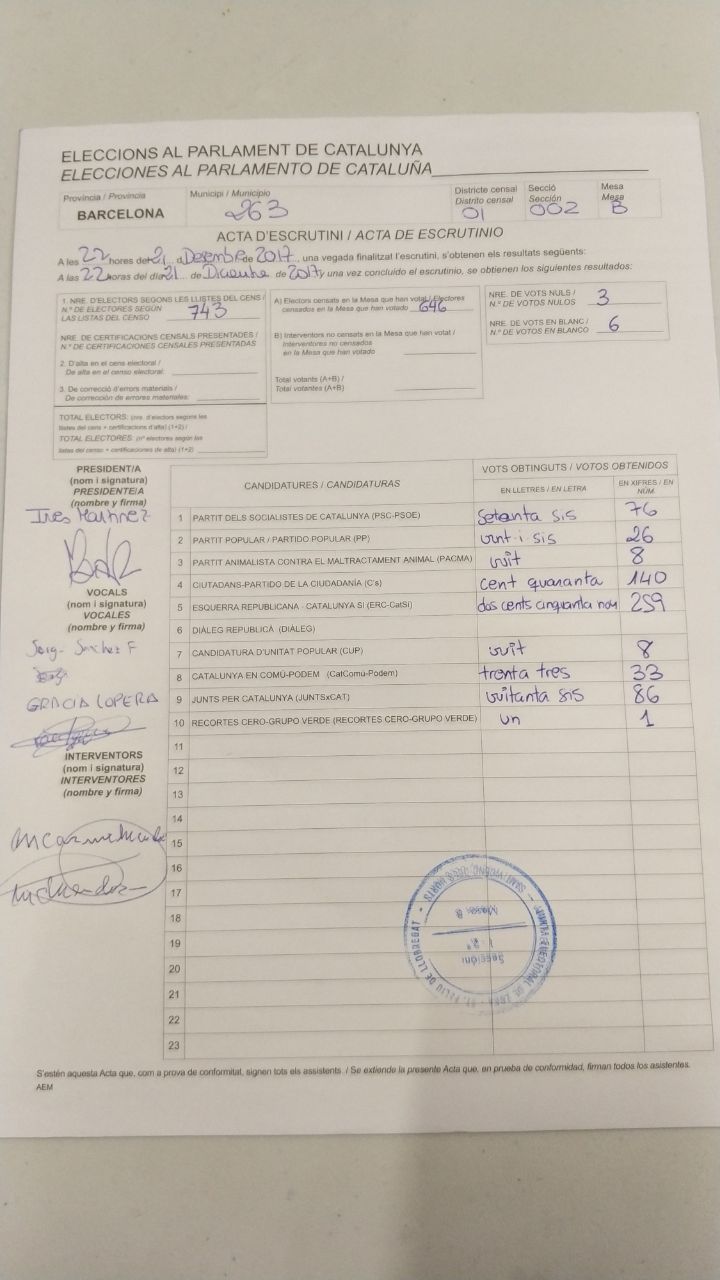 ELECCIONS AL PARLAMENT DE CATALUNYA
ELECCIONES AL PARLAMENTO DE CATALUÑA
Província / Provincia Municipi / Municipio Districte censal Secció Mesa
Distrito censal Sección Mesa
BARCELONA 263 01 002 B
ACTA D'ESCRUTINI / ACTA DE ESCRUTINIO
A les 22 hores del 21 d Desembre de 2017, una vegada finalitzat l'escrutini, s'obtenen els resultats següents:
A las 22 horas del día 21 de Diciembre de 2017 y una vez concluido el escrutinio, se obtienen los siguientes resultados:
1. NRE. D'ELECTORS SEGONS LES LLISTES DEL CENS /
N.º DE ELECTORES SEGÚN
LAS LISTAS DEL CENSO 743
NRE. DE CERTIFICACIONS CENSALS PRESENTADES /
N.º DE CERTIFICACIONES CENSALES PRESENTADAS
2. D'alta en el cens electoral /
De alta en el censo electoral:
3. De correcció d'errors materials /
De corrección de errores materiales:
TOTAL ELECTORS: (nre. d'electors segons les
llistes del cens + certificacions d'alta) (1+2) /
TOTAL ELECTORES: (nº electores según las
listas del censo + certificaciones de alta) (1+2)
A) Electors censats en la Mesa que han votat / Electores
censados en la Mesa que han votado 646
B) Interventors no censats en la Mesa que han votat /
Interventores no censados
en la Mesa que han votado
Total votants (A+B) /
Total votantes (A+B)
NRE. DE VOTS NULS /
N.º DE VOTOS NULOS 3
NRE. DE VOTS EN BLANC /
N.º DE VOTOS EN BLANCO 6
PRESIDENT/A
(nom i signatura)
PRESIDENTE/A
(nombre y firma)
Ines Martinez
VOCALS
(nom i signatura)
VOCALES
(nombre y firma)
Sanchez F
GRACIA LOPERA
INTERVENTORS
(nom i signatura)
INTERVENTORES
(nombre y firma)
CANDIDATURES / CANDIDATURAS VOTS OBTINGUTS / VOTOS OBTENIDOS
EN LLETRES / EN LETRA EN XIFRES / EN NÚM.
1 PARTIT DELS SOCIALISTES DE CATALUNYA (PSC-PSOE) Setanta sis 76
2 PARTIT POPULAR / PARTIDO POPULAR (PP) vint i sis 26
3 PARTIT ANIMALISTA CONTRA EL MALTRACTAMENT ANIMAL (PACMA) vuit 8
4 CIUTADANS-PARTIDO DE LA CIUDADANÍA (C's) cent quaranta 140
5 ESQUERRA REPUBLICANA - CATALUNYA SÍ (ERC-CatSí) dos cents cinquanta nou 259
6 DIÀLEG REPUBLICÀ (DIÀLEG)
7 CANDIDATURA D'UNITAT POPULAR (CUP) vuit 8
8 CATALUNYA EN COMÚ-PODEM (CatComú-Podem) trenta tres 33
9 JUNTS PER CATALUNYA (JUNTSxCAT) vuitanta sis 86
10 RECORTES CERO-GRUPO VERDE (RECORTES CERO-GRUPO VERDE) un 1
11
12
13
14
15
16
17
18
19
20
21
22
23
ELECTORAL DE ZONA - ST. FELIU DE LLOBREGAT
HORTS
Secció: 2ª
Mesa: B
S'estén aquesta Acta que, com a prova de conformitat, signen tots els assistents. / Se extiende la presente Acta que, en prueba de conformidad, firman todos los asistentes.
AEM